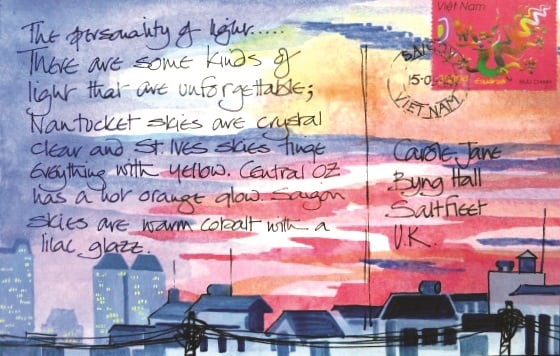 The personality of light.....
There are some kinds of
light that are unforgettable;
Nantucket skies are crystal
clear and St. Ives skies tinge
everything with yellow. Central OZ
has a hot orange glow. Saigon
skies are warm cobalt with a
lilac glaze.
Việt Nam
SAIGON
15-0
VIETNAM
Carole-Jane
Byng Hall
Saltfleet
U.K.